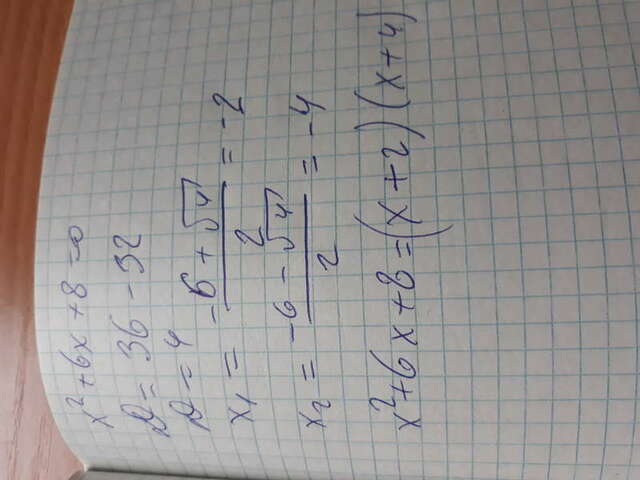 x²+6x+8=0
D = 36 - 32
D = 4
x₁ = (-6 + √4) / 2 = -2
x₂ = (-6 - √4) / 2 = -4
x²+6x+8 = (x+2)(x+4)